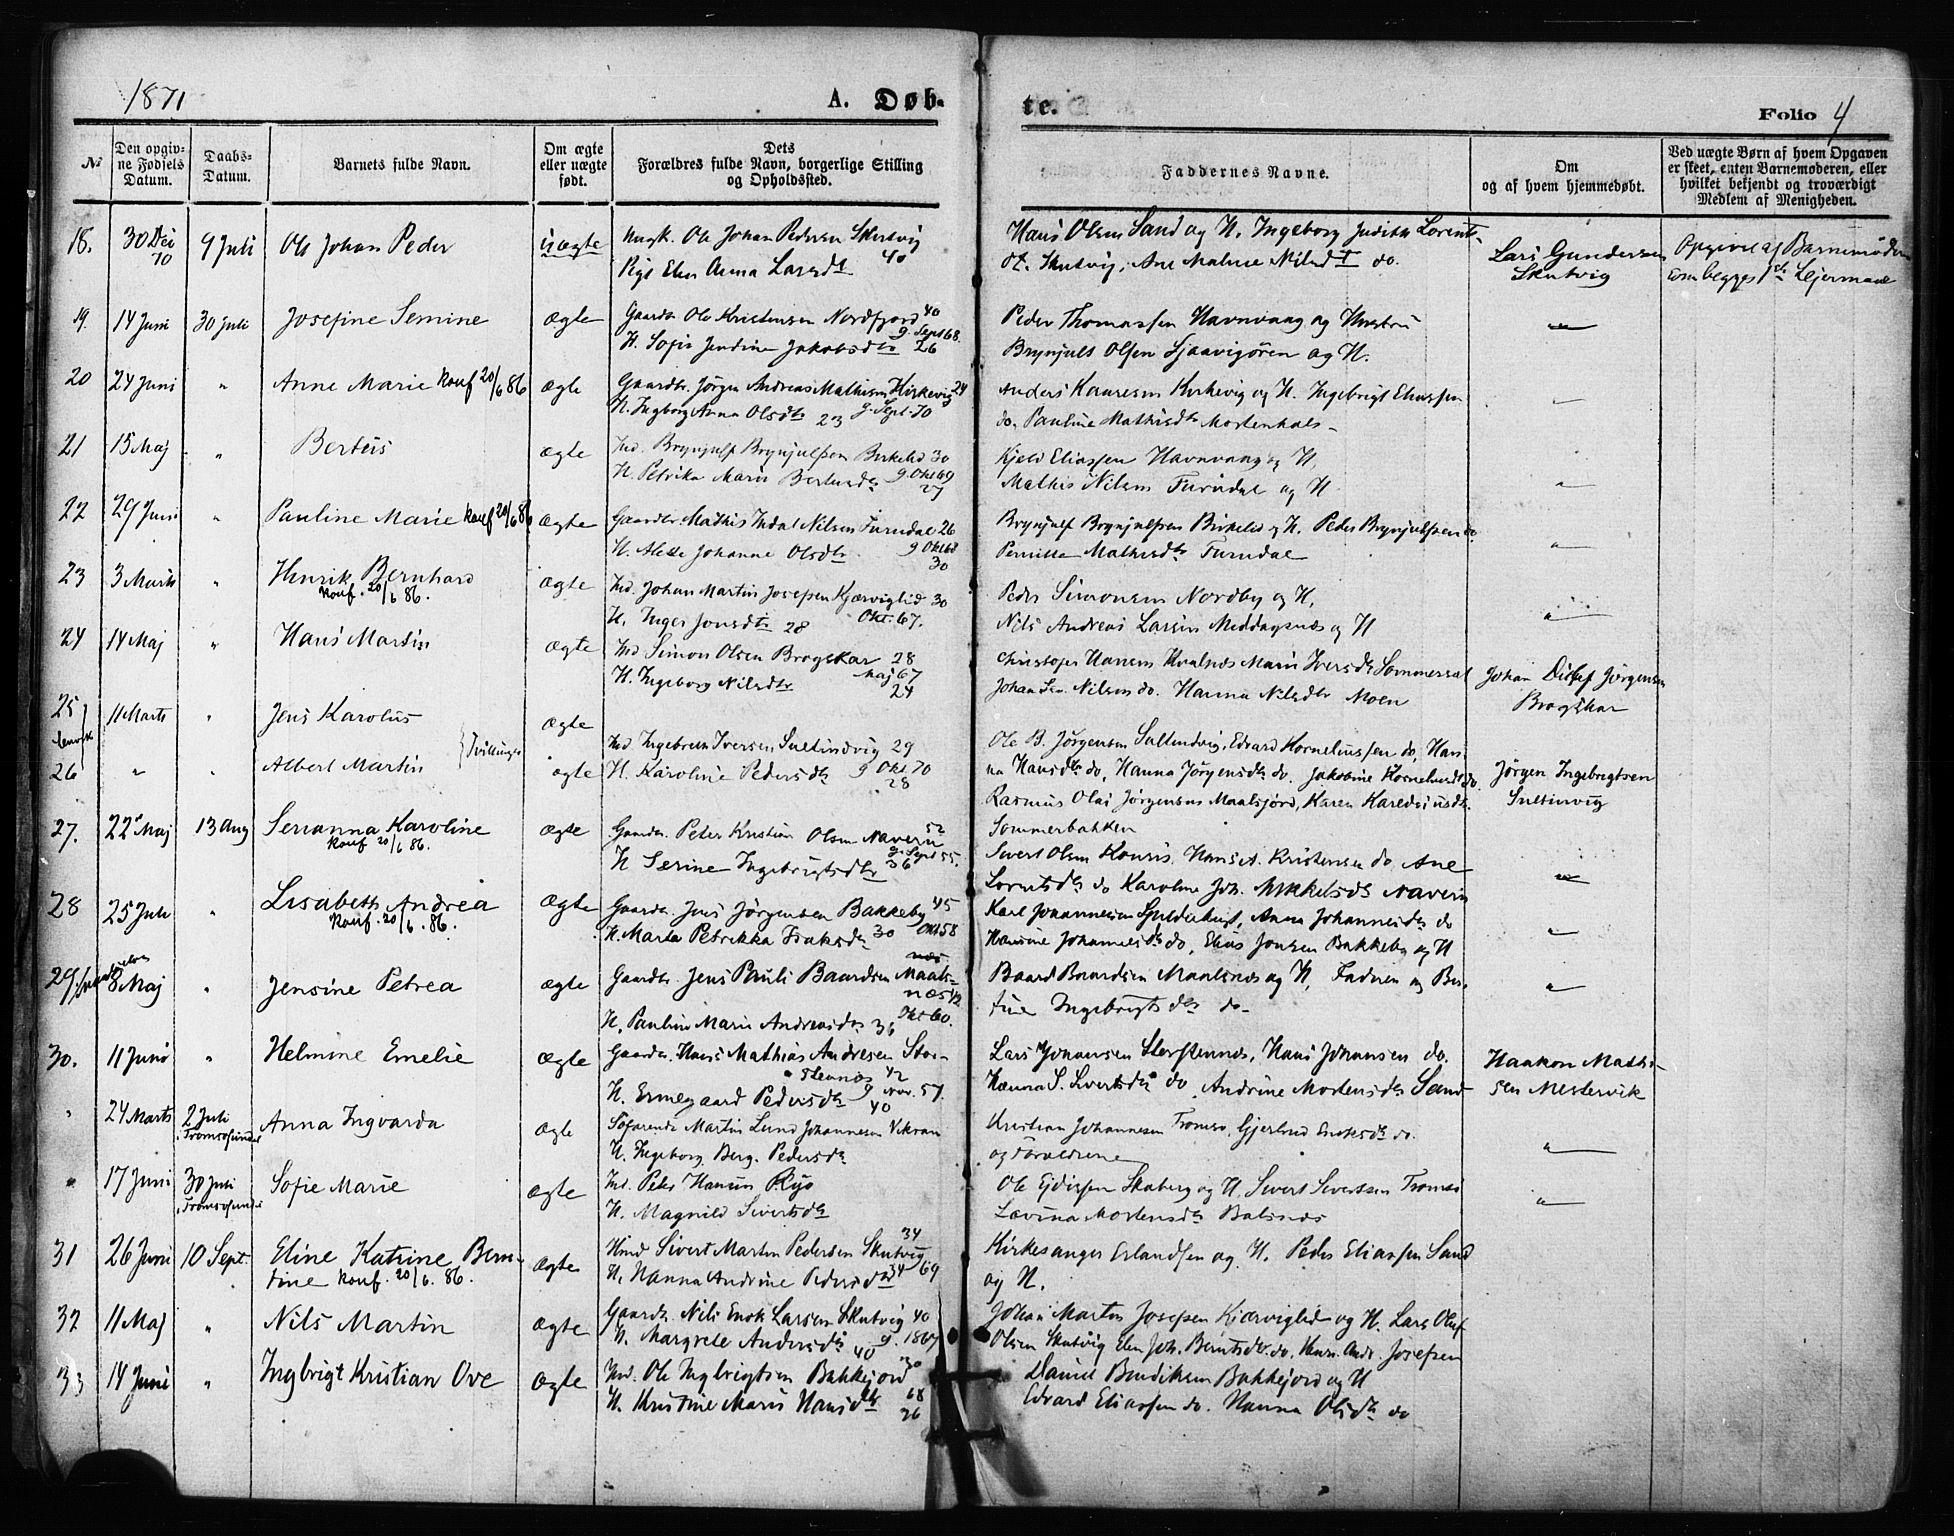 1871
A. Døb-
te.
Folio 4
№
Den opgivne Fødsels Datum.
Daabs-Datum.
Barnets fulde Navn.
Om ægte eller uægte født.
Dets Forældres fulde Navn, borgerlige Stilling og Opholdssted.
Faddernes Navne.
Om og af hvem hjemmedøbt.
Ved uægte Børn af hvem Opgaven er skeet, enten Barnemoderen, eller hvilket bekjendt og troværdigt Medlem af Menigheden.
18. 30 Dec 70 9 Juli Ole Johan Peder uægte Ungk. Ole Johan Pedersen Skutvig 40
Pige Elen Anna Larsdt
Hans Olsen Sand og H. Ingeborg Judith Lorents-
dt. Skutvig, Ane Malene Nilsdt do.
Lars Gundersen Skutvig
Opgivet af Barnemoderen
som begges 1ste Lejermaal
19. 14 Juni 30 juli Josefine Semine ægte Gaardb. Ole Kristensen Nordfjord 40
H. Sofie Jendine Jakobsdtr g. Sept 68. 26
Peder Thomassen Havnvaag og Hustru
Brynjulf Olsen Sjaavigøren og H.
20 24 Juni " Anne Marie konf 20/6 86 ægte Gaardbr. Jørgen Andreas Mathisen Kirkevig 24
H. Ingborg Anna Olsdtr 23 g. Sept. 70
Anders Kaaresen Kirkevig og H. Ingebrigt Eliassen
do. Pauline Mathisdtr Mortenhals
21 15 Maj " Bertus ægte Ind. Brynjulf Brynjulfsen Birkelid 30
H. Petrika Marie Bertusdtr g. Okt 69 27
Kjeld Eliassen Havnvaag og H.
Mathis Nilsen Furudal og H
22 29 Juni " Pauline Marie konf 20/6 86 ægte Gaardbr Mathis Indal Nilsen Furudal 26
H. Alette Johanne Olsdtr g Okt 68 30
Brynjulf Brynjulfsen Birkelid og H. Peder Brynjulfsen do.
Pernille Mathisdtr Furudal
23 3 Marts " Henrik Bernhard ægte Ind. Johan Martin Josefsen Kjærviglid 30
konf. 20/6 86.
H. Inger Jonsdtr 28 Okt. 67.
Peder Simonsen Nordby og H.
Nils Andreas Larsen Middagsnes og H
24 14 Maj " Hans Martin ægte Ind Simon Olsen Brogskar 28
H. Ingeborg Nilsdtr Maj 67 24
Christofer Hansen Kvalnes Marie Iversdtr Sommersæt
Johan Nilsen do. Hanna Nilsdtr Moen
Johan Ditlef Jørgensen Brogskar
25 11 Marts " Jens Karolus ægte
26 " " Albert Martin Tvillinger ægte
Ind Ingebret Iversen Sultindvig 29
H. Karoline Pedersdtr g Okt 70 28
Ole B. Jørgensen Sultindvig, Edvard Korneliussen do, Han-
na Hansdtr do, Hanna Jørgensdtr do. Jakobine Korneliusdtr do.
Rasmus Olai Jørgensen Maalsjord, Karen
Sommerbakken
Jørgen Ingebrigtsen Sultinvig
27. 22 Maj 13 Aug Serianna Karoline ægte Gaardbr. Peter Kristian Olsen Naveren 52
konf 20/6 86.
H Serine Ingebrigtsdtr 36 g. Sept 55.
Sivert Olsen Kours. Hans A. Kristensen do Ane
Lorentsdtr do Karoline Joh. Mikkelsdtr Naveren
28 25 Juli " Lisabeth Andrea ægte Gaardbr Jens Jørgensen Bakkeby 45
konf. 20/6. 86.
H. Marta Petrikka Isaksdtr 30 Okt 58
Karl Johannesen Anna Johannesdtr do
Hansine Johannesdtr do, Elias Jonsen Bakkeby og H
29 8 Maj " Jensine Petrea ægte Gaardbr Jens Pauli Baardsen Maals-
næs 42
H. Pauline Marie Andreasdtr 36 Okt 60.
Baard Baardsen Maalsnæs og H, Faderen og Ber-
tine Ingebrigtsdtr do
30. 11 Juni " Helmine Emelie ægte Gaardbr. Hans Mathias Andresen Stor-
stennes 42
H. Ermegaard Pedersdtr 40 g Nov. 57.
Lars Johansen Storstennes, Hans Johansen do.
Hanna S. Sivertsdtr do Andrine Mortensdtr Sand
Haakon Mathi-
sen Mestervik
" 24 Marts 2 Juli i Tromsøsundet Anna Ingvarda ægte Søfarende Martin Lund Johannesen Vikran
H. Ingeborg Berg. Pedersdtr
Kristian Johannesen Tromsø, Gjertrud Enoksdtr do.
og Forældrene
" 17 Juni 30 Juli i Tromsøsundet Sofie Marie ægte Ind. Peter Hansen Ryø
H. Magnild Sivertsdtr
Ole Ejdissen Skaberg og H. Sivert Sivertsen Tromsø
Lavina Mortensdtr Balsnes
31 26 Juni 10 Sept. Eline Katrine Bern- ægte Hmd Sivert Morten Pedersen Skutvig 34
tine konf. 20/6. 86.
H. Hanna Andrine Pedersdtr 34 69
Kirkesanger Erlandsen og H. Peder Eliassen Sand
og H.
32 11 Maj " Nils Martin ægte Gaardbr Nils Enok Larsen Skutvig 40
H. Margrete Andersdtr 40 g. 1867
Johan Martin Josefsen Kjærviglid og H. Lars Oluf
Olsen Skutvig Elen Joh. Berntsdtr do. Henr. Andr. Josefsen
33 14 Juni " Ingbrigt Kristian Ove ægte Ind. Ole Ingbrigtsen Bakkejord 30
H. Kristine Marie Hansdtr 68 26
Daniel Bendiksen Bakkejord og H
Edvard Eliassen do. Hanna Olsdtr do